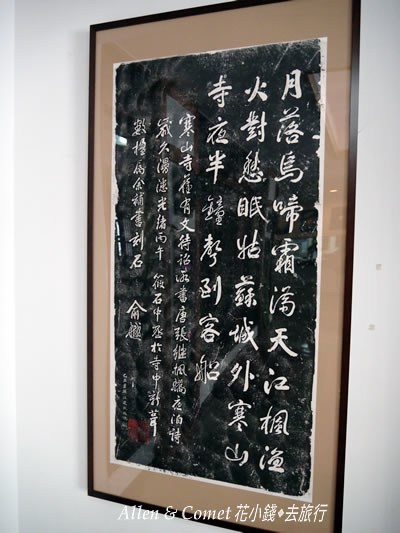 月落烏啼霜滿天江楓漁
火對愁眠姑蘇城外寒山
寺夜半鐘聲到客船
寒山寺舊有文待詔所書唐張繼楓橋夜泊詩
歲久漫漶光緒丙午筱石中丞於寺中新葺
數楹屬余補書刻石
俞樾
Allen & Comet 花小錢◆去旅行